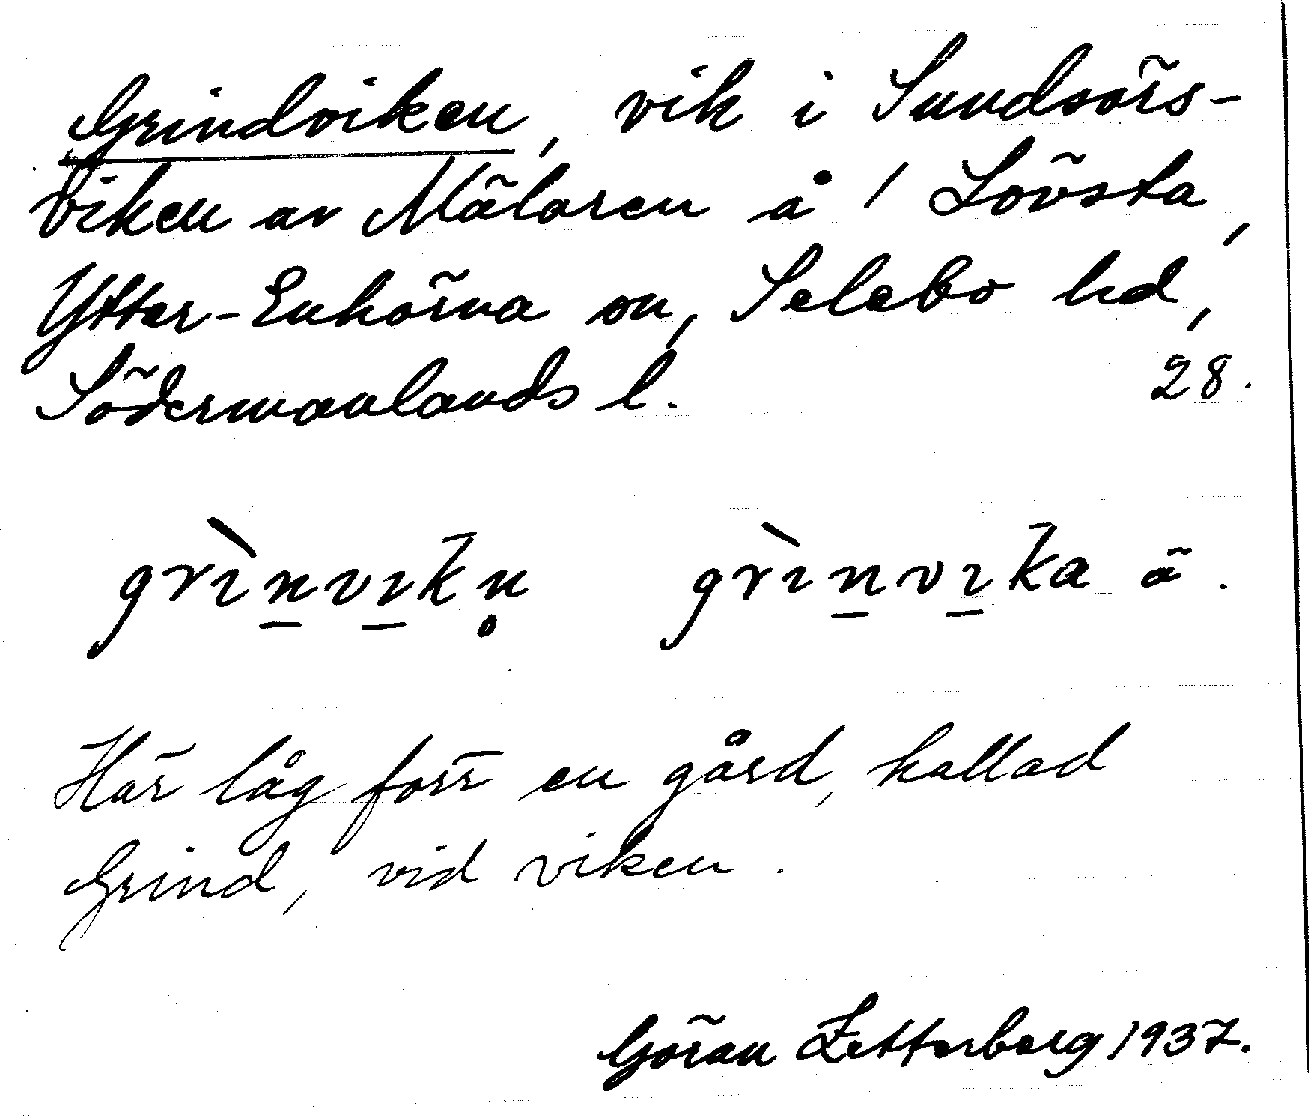 Grindviken, vik i Sundsörs-
viken av Mälaren å 1 Lövsta,
Ytter-Enhörna sn, Selebo hd,
Södermanlands l. 28.
grìnvikn̥ grìnvika ä.
Här låg förr en gård, kallad
Grind, vid viken.
Göran Zetterberg 1937.